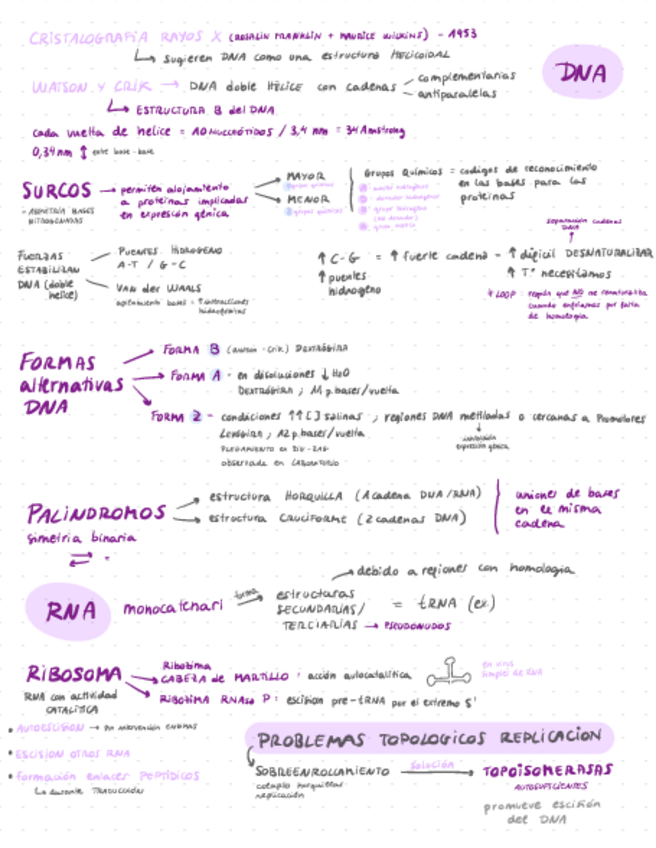 CRISTALOGRAFIA RAYOS X (ROSALIN FRANKLIN + MAURICE WILKINS) - 1953
DNA
Sugieren DNA como una estructura HELICOIDAL
WATSON Y CRIK → DNA doble HÉLICE con cadenas
complementarias
antiparalelas
ESTRUCTURA B del DNA
cada vuelta de helice = 10 NUCLEÓTIDOS / 3,4 nm = 34 Amstrong
0,34 nm ↕ entre base-base
SURCOS → permiten alojamiento
a proteinas implicadas
en expresión génica
- ASIMETRÍA BASES
NITROGENADAS
MAYOR
MENOR
Grupos Químicos = codigos de reconocimiento
en las bases para las
proteinas
FUERZAS
ESTABILIZAN
DNA (doble
helice)
PUENTES HIDROGENO
A-T / G-C
VAN der WAALS
apilamiento bases =
separación cadenas
DNA
↑ C-G = ↑ fuerte cadena - ↑ dificil DESNATURALIZAR
↑ puentes
hidrogeno
↑ Tª necesitamos
* LOOP: región que NO se renaturaliza
cuando enfriamos por falta
de homologia
FORMAS
alternativas
DNA
FORMA B (Watson-Crik) DEXTRÓGIRA
FORMA A - en disoluciones ↓ H2O
DEXTRÓGIRA ; 11 p.bases/vuelta
FORMA Z - condiciones ↑↑ [ ] salinas ; regiones DNA metiladas o cercanas a Promotores
LEVÓGIRA ; 12 p.bases/vuelta
PLEGAMIENTO en ZIG-ZAG
observada en LABORATORIO
inhibición
expresión génica
PALINDROMOS
simetria binaria
estructura HORQUILLA (1 cadena DNA/RNA)
estructura CRUCIFORME (2 cadenas DNA)
uniones de bases
en la misma
cadena
RNA
monocatenari
forma
debido a regiones con homologia
estructuras
SECUNDARIAS/
TERCIARIAS → PSEUDONUDOS
= tRNA (ex)
RIBOSOMA
RNA con actividad
CATALÍTICA
Ribozima
CABEZA de MARTILLO: acción autocatalítica
en virus
simples de RNA
Ribozima RNAsa P: escision pre-tRNA por el extremo 5'
• AUTOESCISION → sin intervención enzimas
• ESCISION OTROS RNA
• formación enlaces PEPTÍDICOS
↳ durante TRADUCCIÓN
PROBLEMAS TOPOLOGICOS REPLICACION
SOBREENROLLAMIENTO
horquillas
replicación
solución
TOPOISOMERASAS
AUTOSUFICIENTES
promueve escisión
del DNA